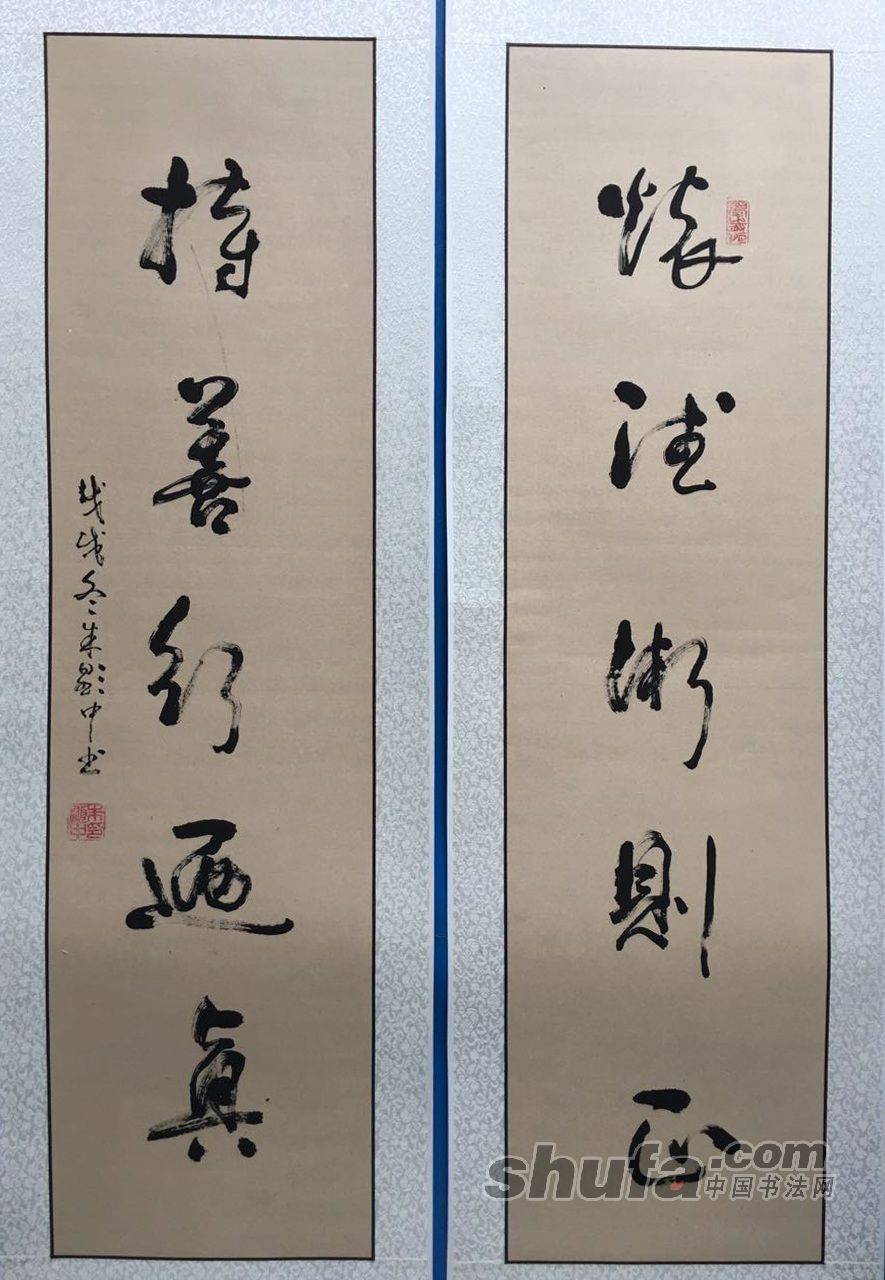 懷德術則正
持善行迺真
戊戌冬朱中书
shufa.com
中国书法网